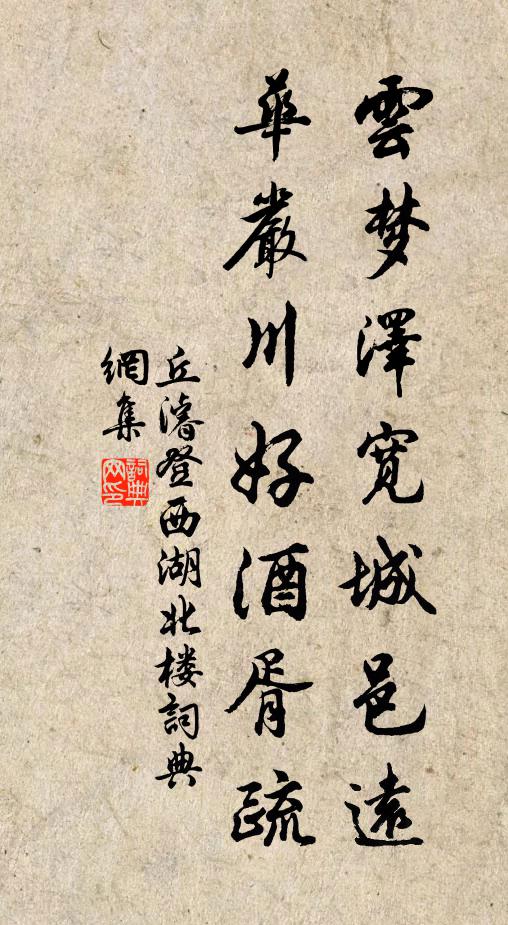 雲梦澤寬城邑遠
華嚴川好酒胥疏
丘濬登西湖北楼詞典
網集
詞典
网印